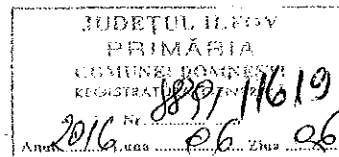 JUDEȚUL ILFOV
PRIMĂRIA
COMUNEI DOMNEȘTI
REGISTRATURA
Nr. 11619
Anul 2016 Luna 06 Ziua 06